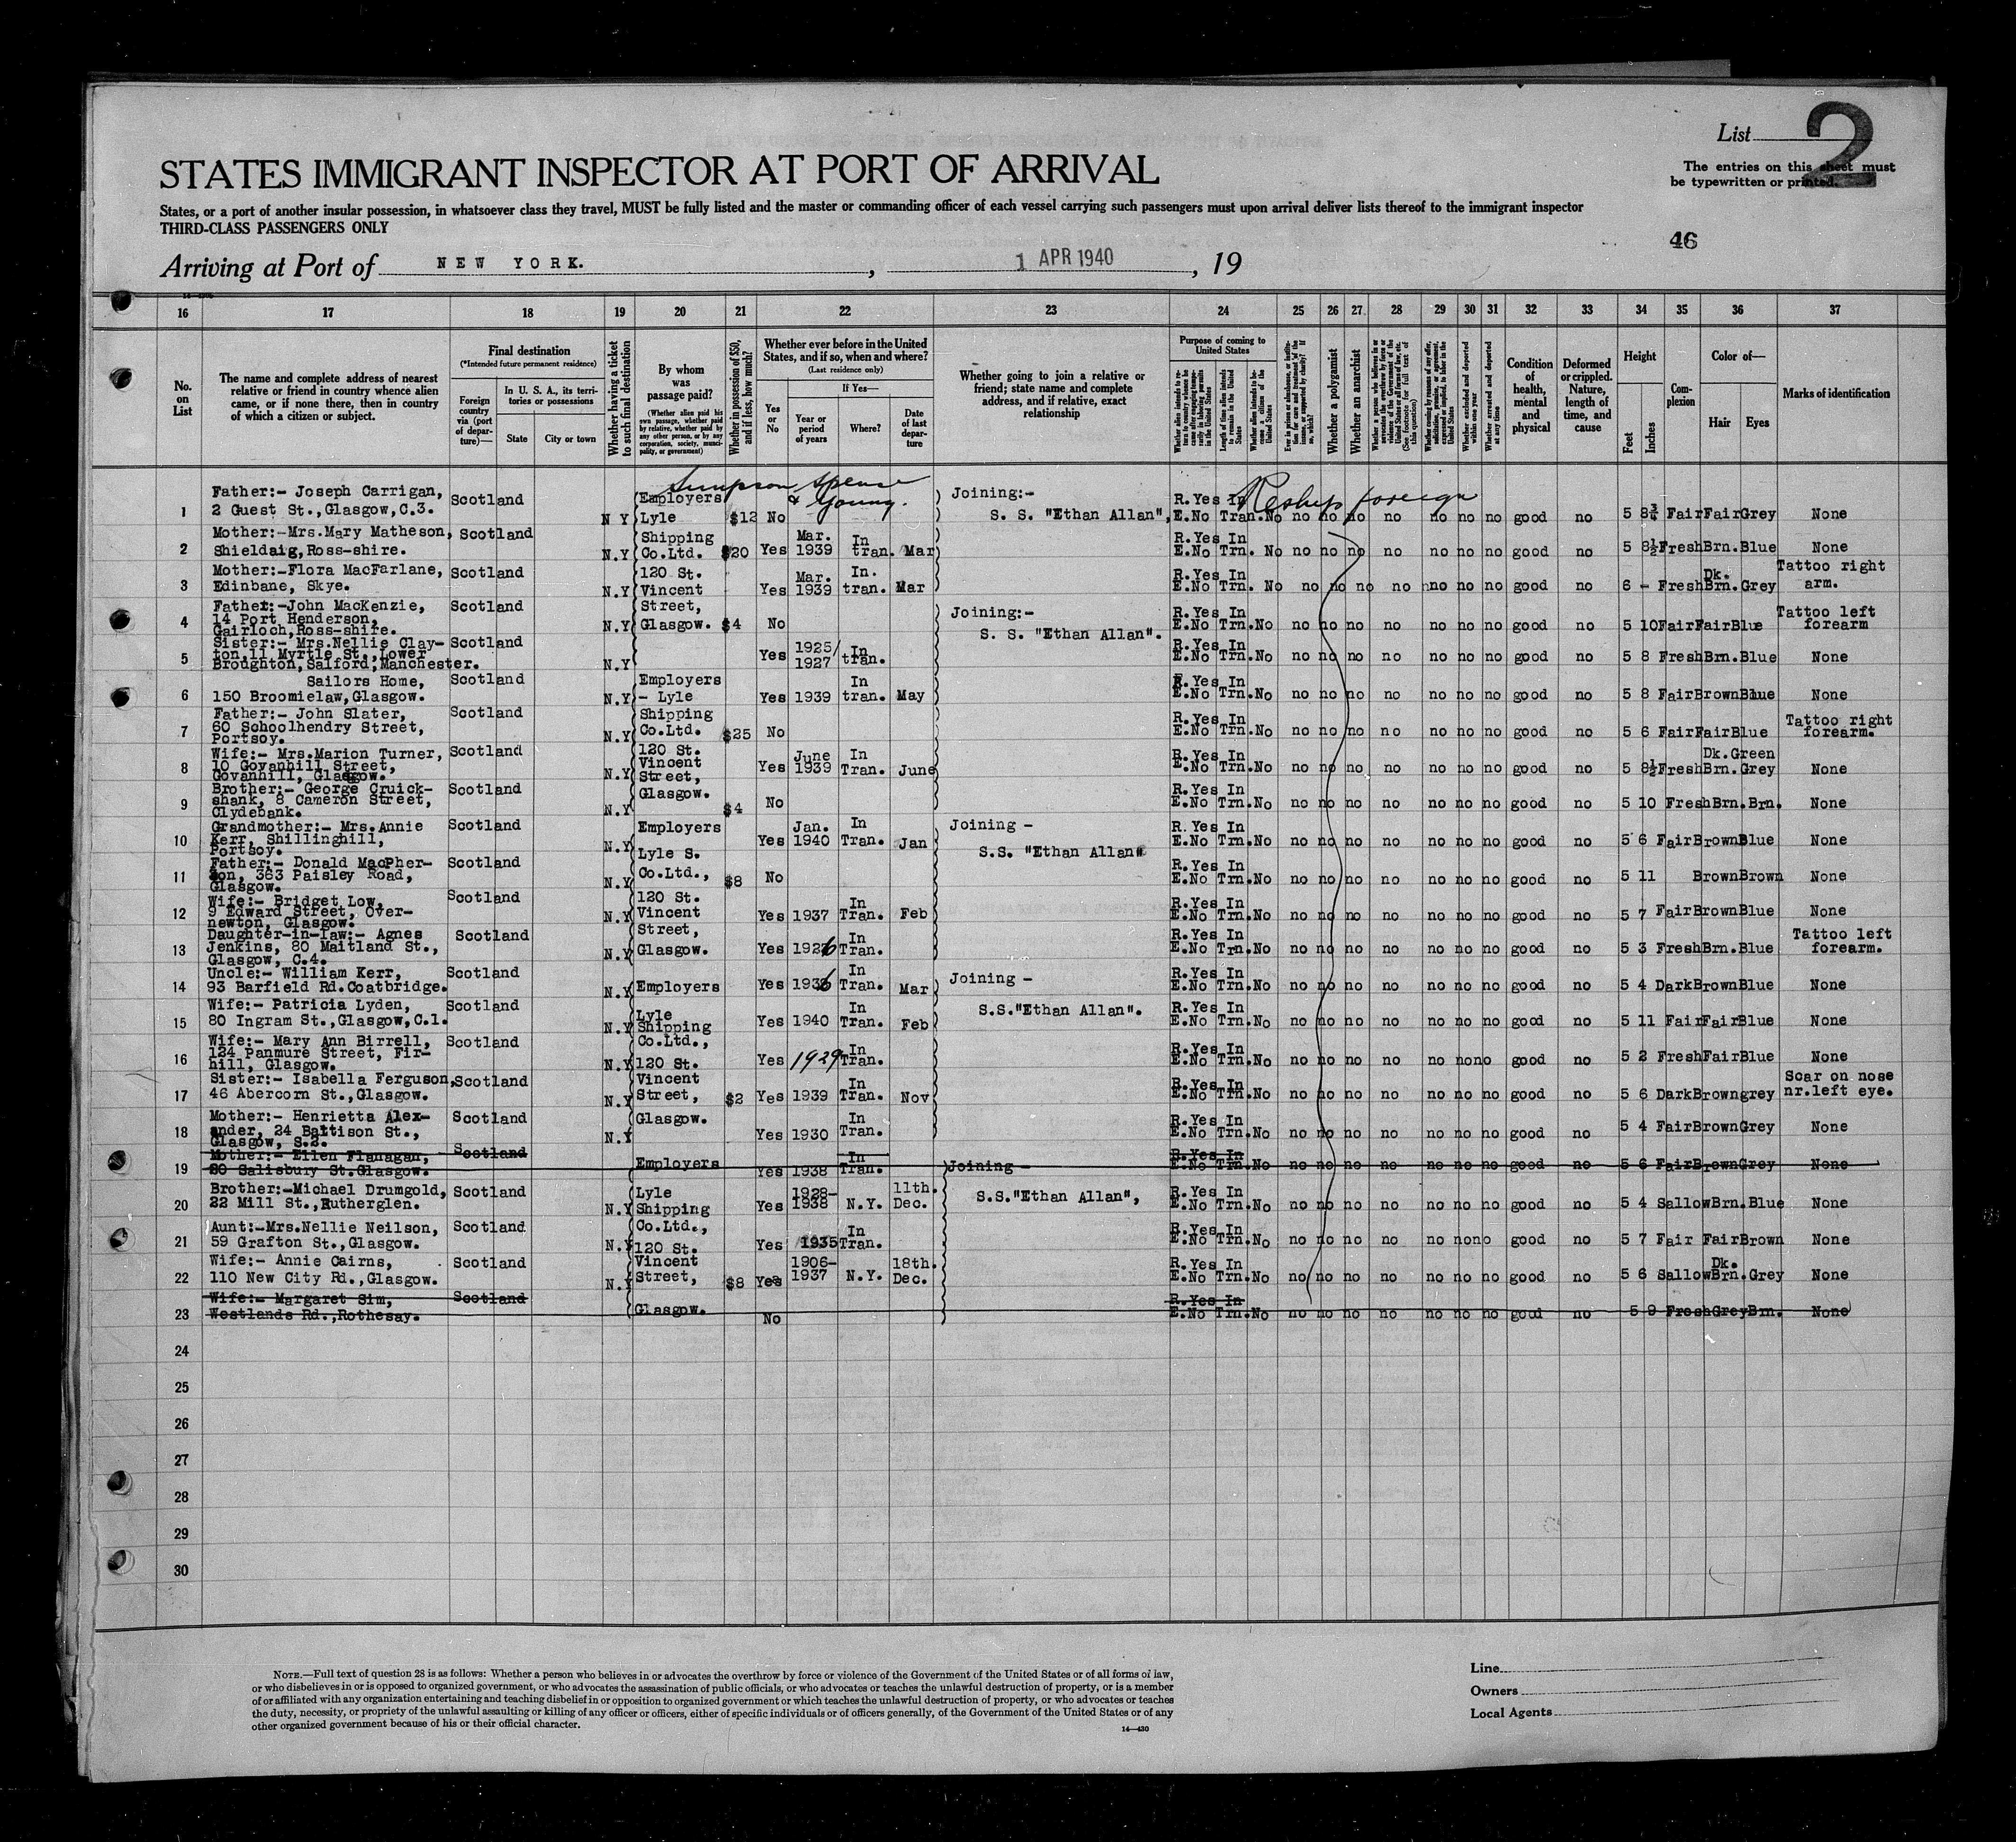 List 2
The entries on this sheet must
be typewritten or printed.
STATES IMMIGRANT INSPECTOR AT PORT OF ARRIVAL
States, or a port of another insular possession, in whatsoever class they travel, MUST be fully listed and the master or commanding officer of each vessel carrying such passengers must upon arrival deliver lists thereof to the immigrant inspector
THIRD-CLASS PASSENGERS ONLY
46
Arriving at Port of NEW YORK. , 1 APR 1940 , 19
16 17 18 19 20 21 22 23 24 25 26 27 28 29 30 31 32 33 34 35 36 37
No. on List
The name and complete address of nearest relative or friend in country whence alien came, or if none there, then in country of which a citizen or subject.
Final destination
(*Intended future permanent residence)
Foreign country via (port of departure)—
In U. S. A., its territories or possessions
State
City or town
Whether having a ticket to such final destination
By whom was passage paid?
(Whether alien paid his own passage, whether paid by relative, whether paid by any other person, or by any corporation, society, municipality, or government)
Whether in possession of $50, and if less, how much?
Whether ever before in the United States, and if so, when and where?
(Last residence only)
Yes or No
If Yes—
Year or period of years
Where?
Date of last departure
Whether going to join a relative or friend; state name and complete address, and if relative, exact relationship
Purpose of coming to United States
Whether a polygamist
Whether an anarchist
Whether excluded and deported within one year
Whether arrested and deported at any time
Condition of health, mental and physical
Deformed or crippled. Nature, length of time, and cause
Height
Feet
Inches
Complexion
Color of—
Hair
Eyes
Marks of identification
Simpson Spence
& Young.
Reship foreign
1 Father:- Joseph Carrigan, 2 Guest St.,Glasgow,C.3. Scotland N Y Employers Lyle $12 No Joining:- S. S. "Ethan Allan", R.Yes In E.No Tran.No no no no no no no no good no 5 8¾ Fair Fair Grey None
2 Mother:-Mrs.Mary Matheson, Shieldaig,Ross-shire. Scotland N.Y Shipping Co.Ltd. $20 Yes Mar. 1939 In tran. Mar R.Yes In E.No Trn. No no no no no no no no good no 5 8½ Fresh Brn. Blue None
3 Mother:-Flora MacFarlane, Edinbane, Skye. Scotland N.Y 120 St. Vincent Yes Mar. 1939 In. tran. Mar R.Yes In E.No Trn. No no no no no no no no good no 6 - Fresh Dk. Brn. Grey Tattoo right arm.
4 Father:-John MacKenzie, 14 Port Henderson, Gairloch,Ross-shire. Scotland N.Y Street, Glasgow. $4 No Joining:- S. S. "Ethan Allan". R.Yes In E.No Trn.No no no no no no no no good no 5 10 Fair Fair Blue Tattoo left forearm
5 Sister:- Mrs.Nellie Clay- ton,11 Myrtle St.,Lower Broughton,Salford,Manchester. Scotland N.Y Yes 1925/ 1927 In tran. R.Yes In E.No Trn.No no no no no no no no good no 5 8 Fresh Brn. Blue None
6 Sailors Home, 150 Broomielaw,Glasgow. Scotland N.Y Employers - Lyle Yes 1939 In tran. May R.Yes In E.No Trn.No no no no no no no no good no 5 8 Fair Brown Blue None
7 Father:- John Slater, 60 Schoolhendry Street, Portsoy. Scotland N.Y Shipping Co.Ltd. $25 No R.Yes In E.No Trn.No no no no no no no no good no 5 6 Fair Fair Blue Tattoo right forearm.
8 Wife:- Mrs.Marion Turner, 10 Govanhill Street, Govanhill, Glasgow. Scotland N.Y 120 St. Vincent Street, Yes June 1939 In Tran. June R.Yes In E.No Trn.No no no no no no no no good no 5 8½ Fresh Dk. Brn. Green Grey None
9 Brother:- George Cruick- shank, 8 Cameron Street, Clydebank. Scotland N.Y Glasgow. $4 No R.Yes In E.No Trn.No no no no no no no no good no 5 10 Fresh Brn. Brn. None
10 Grandmother:- Mrs.Annie Kerr, Shillinghill, Portsoy. Scotland N.Y Employers Yes Jan. 1940 In Tran. Jan Joining - S.S. "Ethan Allan" R.Yes In E.No Trn.No no no no no no no no good no 5 6 Fair Brown Blue None
11 Father:- Donald MacPher- son, 363 Paisley Road, Glasgow. Scotland N.Y Lyle S. Co.Ltd., $8 No R.Yes In E.No Trn.No no no no no no no no good no 5 11 Brown Brown None
12 Wife:- Bridget Low, 9 Edward Street, Over- newton, Glasgow. Scotland N.Y 120 St. Vincent Yes 1937 In Tran. Feb R.Yes In E.No Trn.No no no no no no no no good no 5 7 Fair Brown Blue None
13 Daughter-in-law:- Agnes Jenkins, 80 Maitland St., Glasgow, C.4. Scotland N.Y Street, Glasgow. Yes 1926 In Tran. R.Yes In E.No Trn.No no no no no no no no good no 5 3 Fresh Brn. Blue Tattoo left forearm.
14 Uncle:- William Kerr, 93 Barfield Rd.Coatbridge. Scotland N.Y Employers Yes 1936 In Tran. Mar Joining - S.S."Ethan Allan". R.Yes In E.No Trn.No no no no no no no no good no 5 4 Dark Brown Blue None
15 Wife:- Patricia Lyden, 80 Ingram St.,Glasgow,C.1. Scotland N.Y Lyle Shipping Yes 1940 In Tran. Feb R.Yes In E.No Trn.No no no no no no no no good no 5 11 Fair Fair Blue None
16 Wife:- Mary Ann Birrell, 124 Panmure Street, Fir- hill, Glasgow. Scotland N.Y Co.Ltd., 120 St. Yes 1929 In Tran. R.Yes In E.No Trn.No no no no no no no no good no 5 2 Fresh Fair Blue None
17 Sister:- Isabella Ferguson, 46 Abercorn St.,Glasgow. Scotland N.Y Vincent Street, $2 Yes 1939 In Tran. Nov R.Yes In E.No Trn.No no no no no no no no good no 5 6 Dark Brown grey Scar on nose nr.left eye.
18 Mother:- Henrietta Alex- ander, 24 Battison St., Glasgow, S.2. Scotland N.Y Glasgow. Yes 1930 In Tran. R.Yes In E.No Trn.No no no no no no no no good no 5 4 Fair Brown Grey None
19 Mother:- Ellen Flanagan, 80 Salisbury St.Glasgow. Scotland Employers Yes 1938 In Tran. Joining - R.Yes In E.No Trn.No no no no no no no no good no 5 6 Fair Brown Grey None
20 Brother:-Michael Drumgold, 22 Mill St.,Rutherglen. Scotland N.Y Lyle Shipping Yes 1928- 1938 N.Y. 11th. Dec. S.S."Ethan Allan", R.Yes In E.No Trn.No no no no no no no no good no 5 4 Sallow Brn. Blue None
21 Aunt:-Mrs.Nellie Neilson, 59 Grafton St.,Glasgow. Scotland N.Y Co.Ltd., 120 St. Yes 1935 In Tran. R.Yes In E.No Trn.No no no no no no no no good no 5 7 Fair Fair Brown None
22 Wife:- Annie Cairns, 110 New City Rd.,Glasgow. Scotland N.Y Vincent Street, $8 Yes 1906- 1937 N.Y. 18th. Dec. R.Yes In E.No Trn.No no no no no no no no good no 5 6 Sallow Dk. Brn. Grey None
23 Wife:- Margaret Sim, Westlands Rd.,Rothesay. Scotland Glasgow. No R.Yes In E.No Trn.No no no no no no no no good no 5 9 Fresh Grey Brn. None
24
25
26
27
28
29
30
NOTE.—Full text of question 28 is as follows: Whether a person who believes in or advocates the overthrow by force or violence of the Government of the United States or of all forms of law,
or who disbelieves in or is opposed to organized government, or who advocates the assassination of public officials, or who advocates or teaches the unlawful destruction of property, or is a member
of or affiliated with any organization entertaining and teaching disbelief in or opposition to organized government or which teaches the unlawful destruction of property, or who advocates or teaches
the duty, necessity, or propriety of the unlawful assaulting or killing of any officer or officers, either of specific individuals or of officers generally, of the Government of the United States or of any
other organized government because of his or their official character.
14—430
Line
Owners
Local Agents